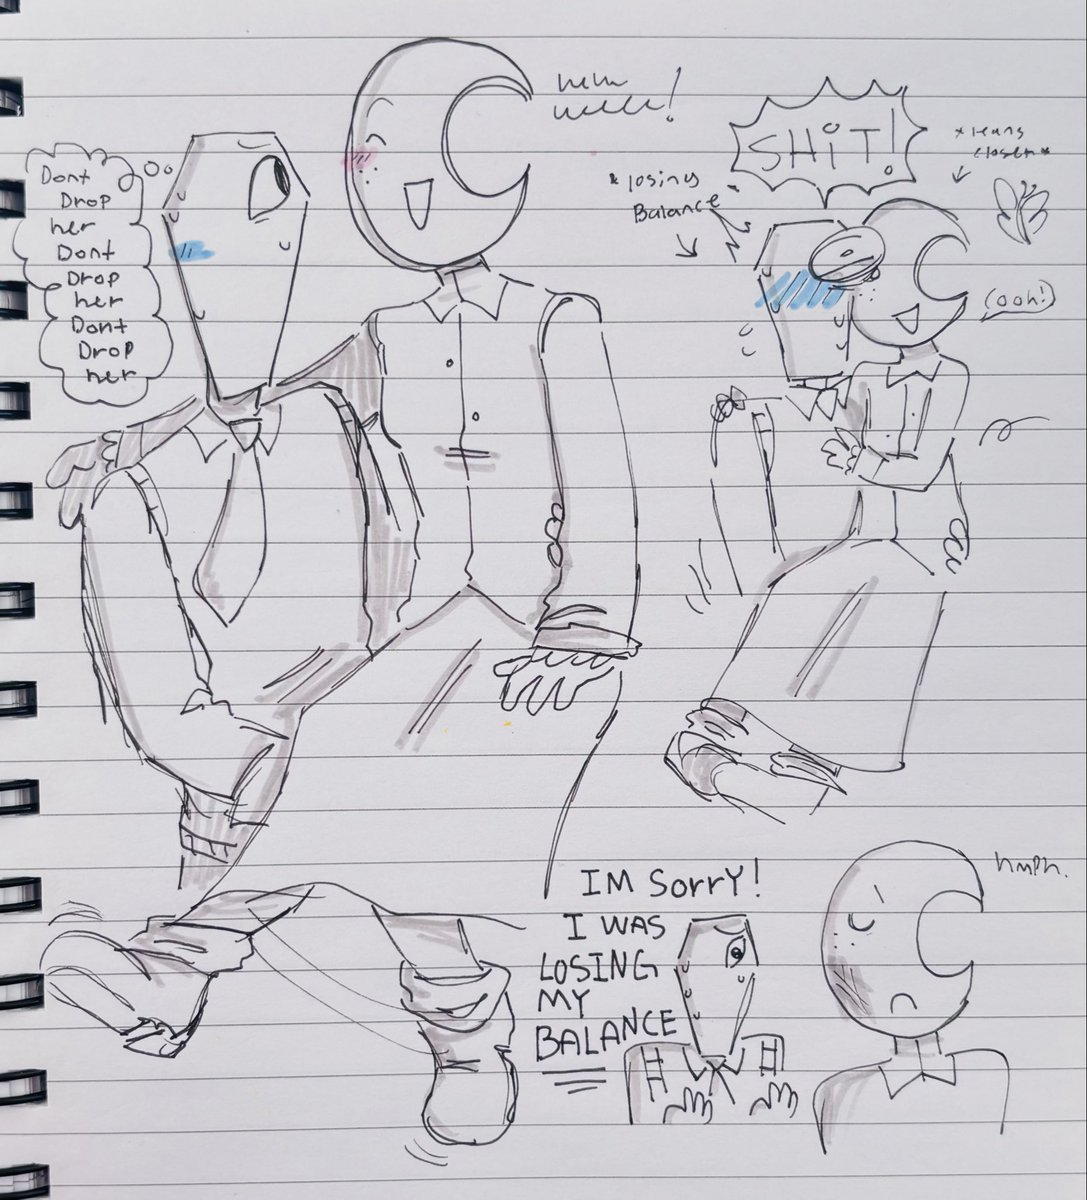 Dont
Drop
her
Dont
Drop
her
Dont
Drop
her
SHiT!
*leans
closer*
*losing
Balance*
(ooh!)
IM SorrY!
I WAS
LOSING
MY
BALANCE
hmph.